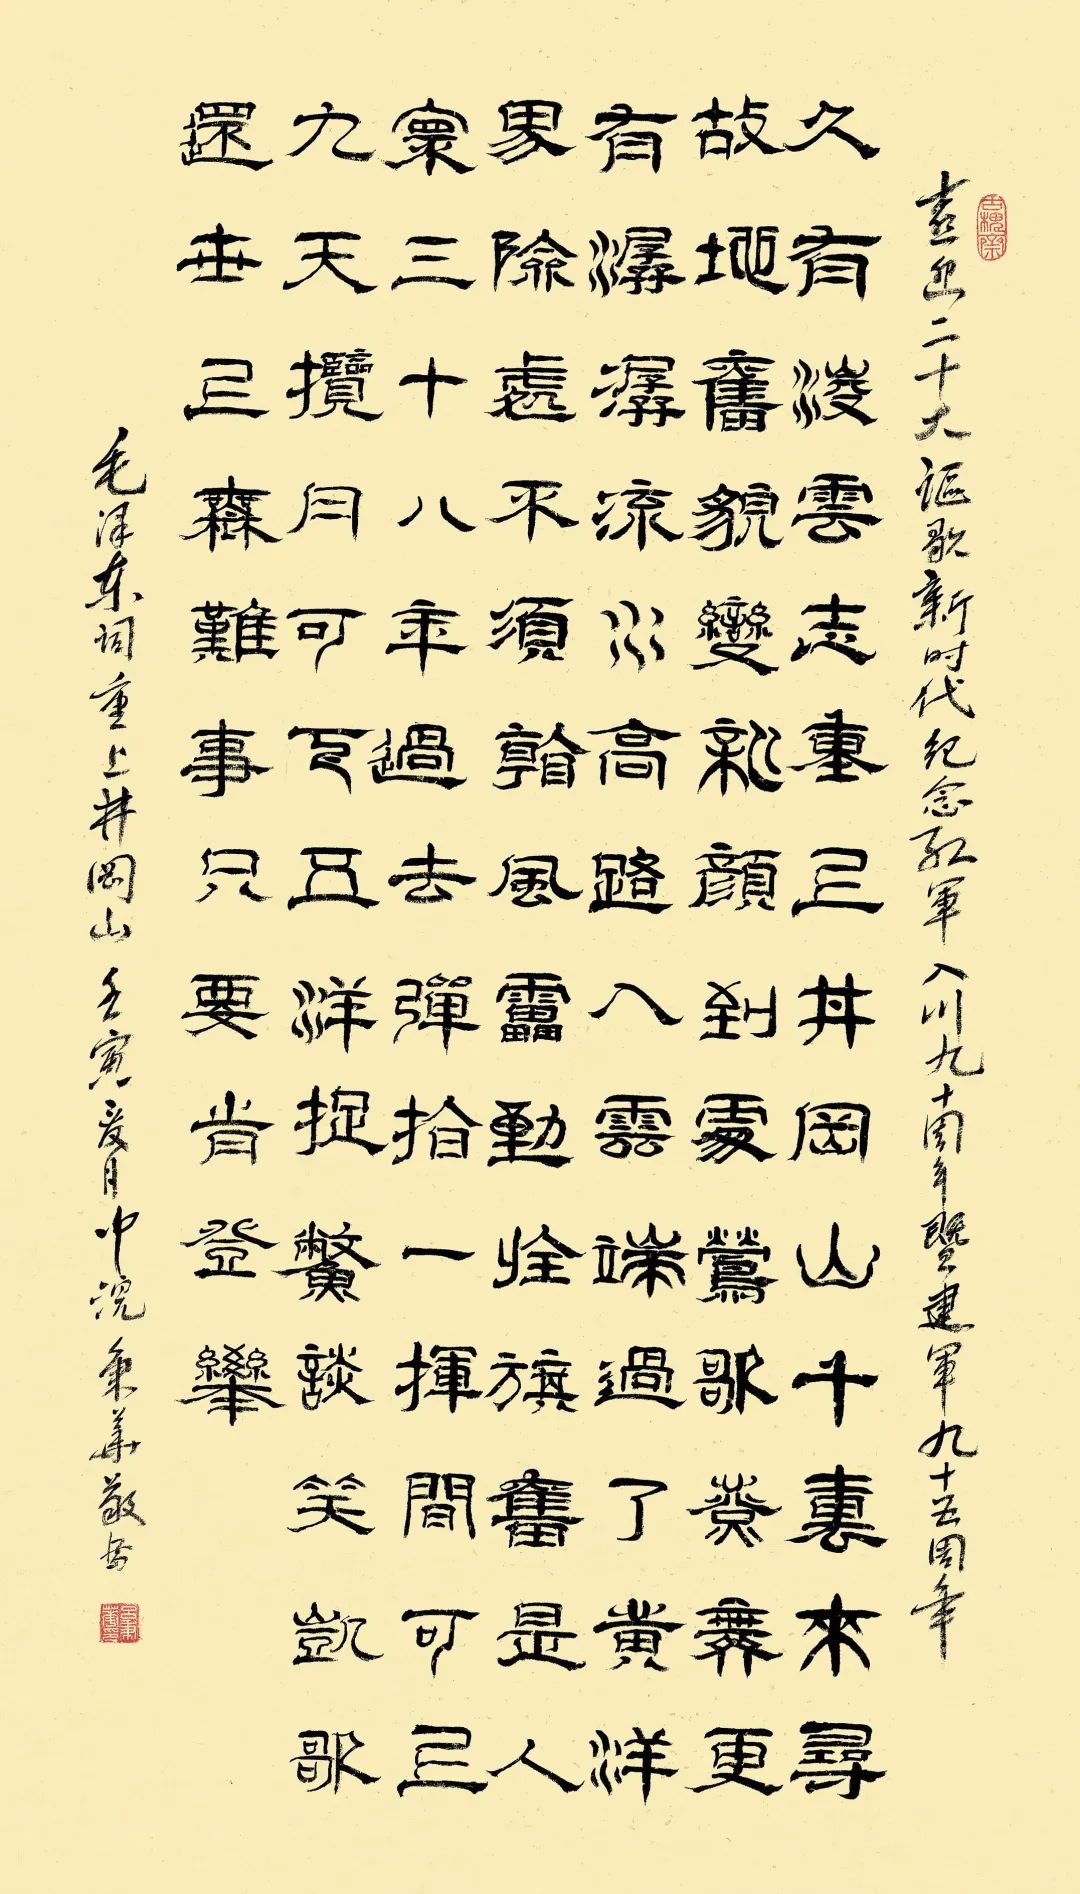 喜迎二十大讴歌新时代纪念红軍入川九十周年暨建軍九十五周年
久有淩雲志重上井岡山千裏來尋
故地舊貌變新顏到處鶯歌燕舞更
有潺潺流水高路入雲端過了黃洋
界險處不須看風雷動旌旗奮是人
寰三十八年過去彈指一揮間可上
九天攬月可下五洋捉鱉談笑凱歌
還世上無難事只要肯登攀
毛泽东词重上井岡山壬寅夏月中浣秉華敬書